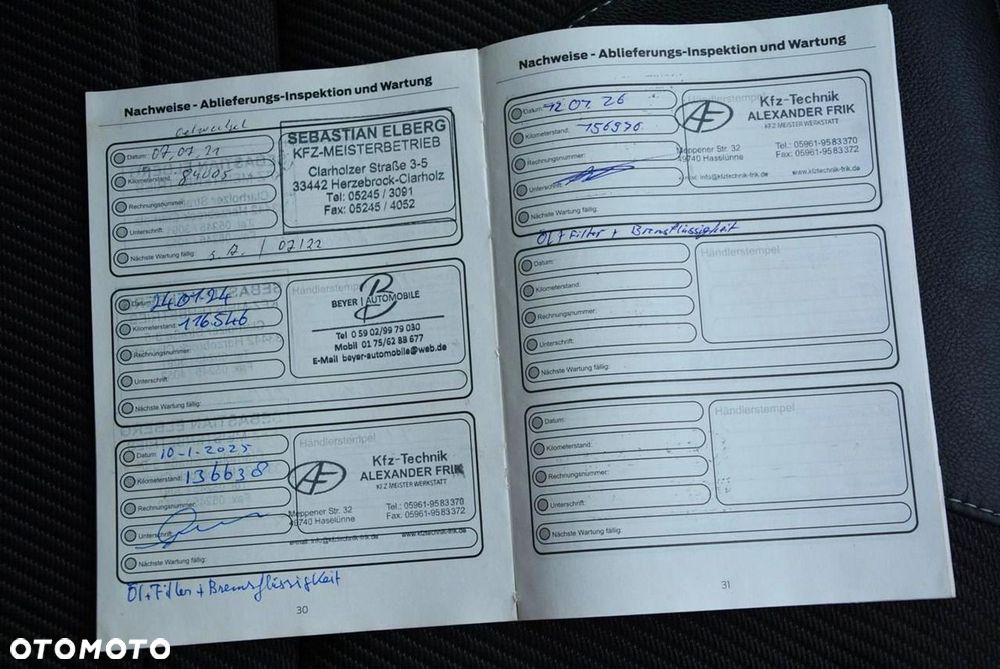 Nachweise - Ablieferungs-Inspektion und Wartung
Oelwechsel
Datum: 07.07.21
Kilometerstand: 84005
Rechnungsnummer:
Unterschrift:
Nächste Wartung fällig: 07/22
SEBASTIAN ELBERG
KFZ-MEISTERBETRIEB
Clarholzer Straße 3-5
33442 Herzebrock-Clarholz
Tel: 05245 / 3091
Fax: 05245 / 4052
Datum: 24.01.24
Kilometerstand: 116.546
Rechnungsnummer:
Unterschrift:
Nächste Wartung fällig:
Händlerstempel
BEYER | AUTOMOBILE
B
Tel 0 59 02/99 79 030
Mobil 01 75/62 88 677
E-Mail beyer-automobile@web.de
Datum: 10-1-2025
Kilometerstand: 136638
Rechnungsnummer:
Unterschrift:
Nächste Wartung fällig:
Händlerstempel
AF
Kfz-Technik
ALEXANDER FRIK
KFZ MEISTER WERKSTATT
Meppener Str. 32
49740 Haselünne
Tel.: 05961-9583370
Fax. 05961-9583372
e-mail: info@kfztechnik-frik.de
www.kfztechnik-frik.de
Öl+Filter + Bremsflüssigkeit
30
Nachweise - Ablieferungs-Inspektion und Wartung
Datum: 12 01. 26
Kilometerstand: 156976
Rechnungsnummer:
Unterschrift:
Nächste Wartung fällig:
Händlerstempel
AF
Kfz-Technik
ALEXANDER FRIK
KFZ MEISTER WERKSTATT
Meppener Str. 32
49740 Haselünne
Tel.: 05961-9583370
Fax.: 05961-9583372
e-mail: info@kfztechnik-frik.de
www.kfztechnik-frik.de
Öl + Filter + Bremsflüssigkeit
Datum:
Kilometerstand:
Rechnungsnummer:
Unterschrift:
Nächste Wartung fällig:
Händlerstempel
Datum:
Kilometerstand:
Rechnungsnummer:
Unterschrift:
Nächste Wartung fällig:
Händlerstempel
31
OTOMOTO